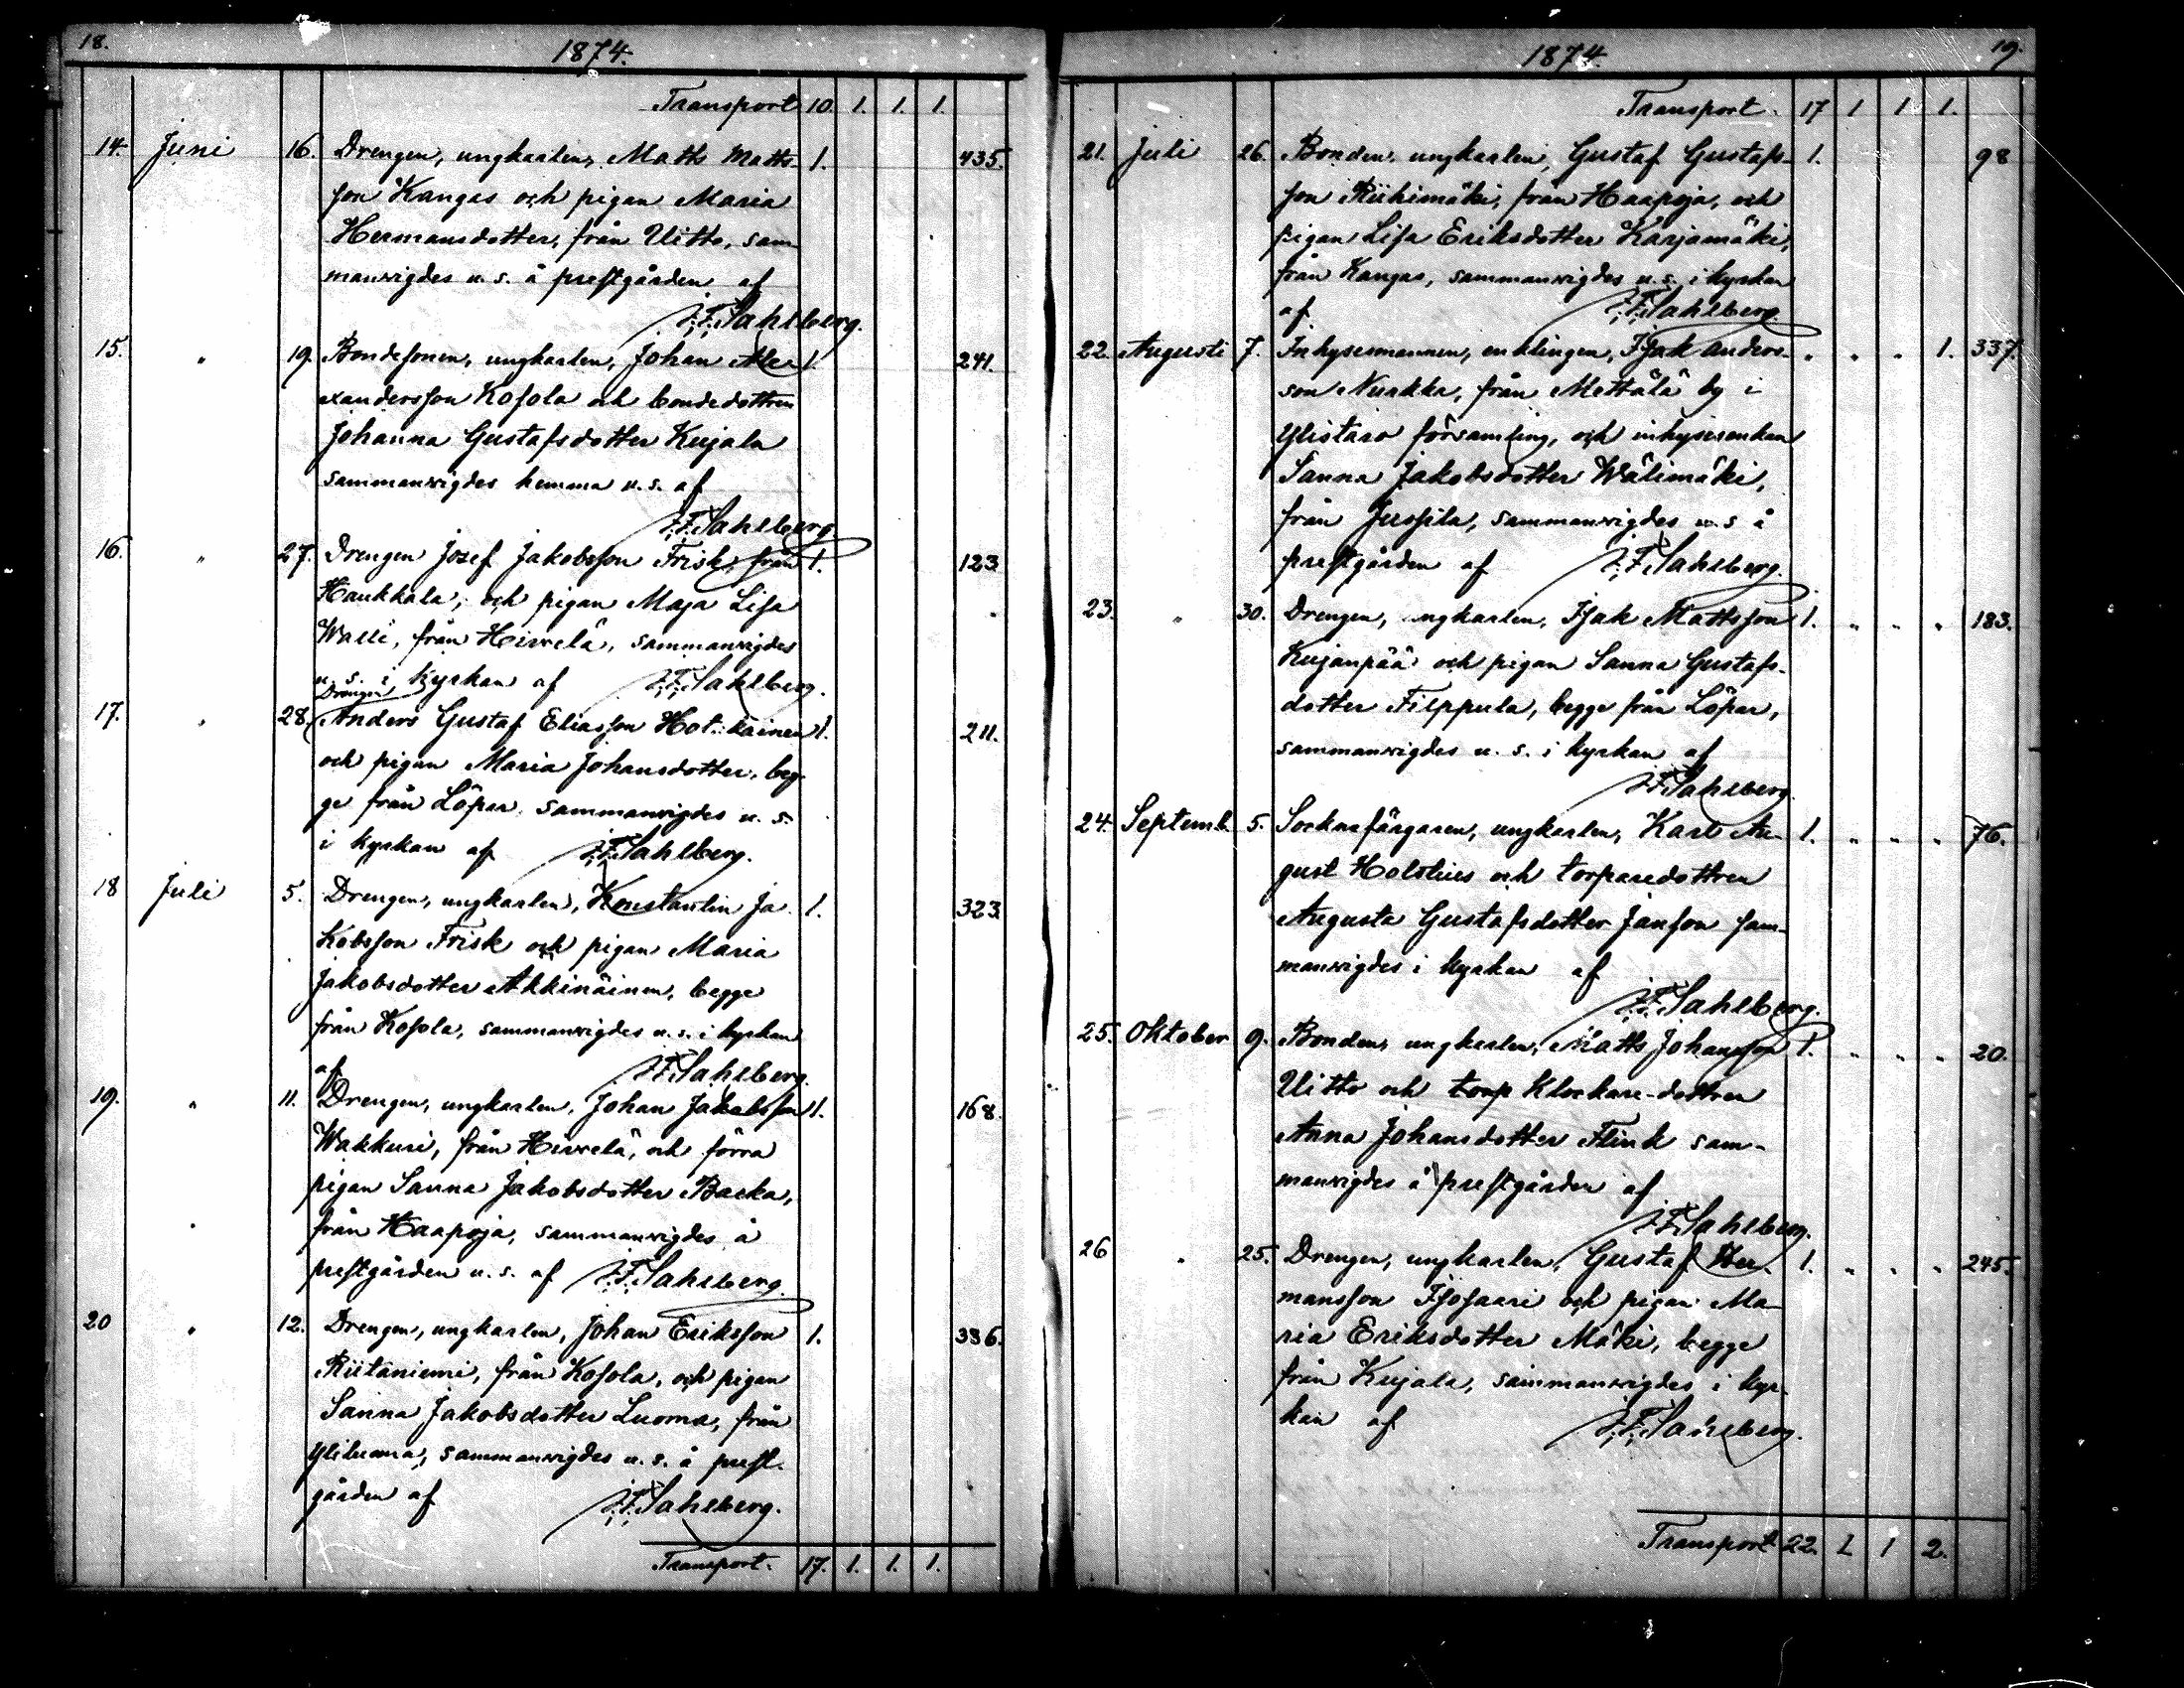 18.
1874.
Transport 10. 1. 1. 1.
14. Juni 16. Drengen, ungkarlen, Matts Matts- 1. 435.
son Kangas och pigan Maria
Hermansdotter, från Uitto, sam
manvigdes u. s. å prestgården af
J. F. Sahlberg.
15. " 19. Bondesonen, ungkarlen, Johan Ale 1. 241.
xandersson Kosola och bondedottren
Johanna Gustafsdotter Kujala
sammanvigdes hemma u. s. af
J. F. Sahlberg
16. " 27. Drengen Josef Jakobsson Frisk, från 1. 123
Haukkala, och pigan Maja Lisa
Walli, från Hirvelä, sammanvigdes
u. s. i kyrkan af J. F. Sahlberg.
Drengen
17. " 28. Anders Gustaf Eliasson Hotakainen 1. 211.
och pigan Maria Johansdotter, beg-
ge från Löpar, sammanvigdes u. s.
i kyrkan af J. F. Sahlberg.
18 Juli 5. Drengen, ungkarlen, Konstantin Ja- 1. 323.
kobsson Frisk och pigan Maria
Jakobsdotter Akkinäinen, begge
från Kosola, sammanvigdes u. s. i kyrkan
af J. F. Sahlberg.
19. " 11. Drengen, ungkarlen, Johan Jakobsson 1. 168.
Wakkuri, från Hirvelä, och förra
pigan Sanna Jakobsdotter Backa,
från Haapoja, sammanvigdes å
prestgården u. s. af J. F. Sahlberg.
20 " 12. Drengen, ungkarlen, Johan Eriksson 1. 336.
Riitaniemi, från Kosola, och pigan
Sanna Jakobsdotter Luoma, från
Yliluoma, sammanvigdes u. s. å prest-
gården af J. F. Sahlberg.
Transport. 17. 1. 1. 1.
1874. 19.
Transport. 17 1 1 1.
21. Juli 26. Bonden, ungkarlen, Gustaf Gustafs- 1. 98
son Riihimäki, från Haapoja, och
pigan Lisa Eriksdotter Karjamäki,
från Kangas, sammanvigdes u. s. i kyrkan
af J. F. Sahlberg.
22. Augusti 7. Inhysesmannen, enklingen, Isak Anders- " " " 1. 337.
son Nurkka, från Mettälä by i
Ylistaro församling, och inhysesenkan
Sanna Jakobsdotter Wälimäki,
från Jussila, sammanvigdes u. s å
prestgården af J. F. Sahlberg.
23. " 30. Drengen, ungkarlen, Isak Mattsson 1. " " " 183.
Kujanpää och pigan Sanna Gustafs-
dotter Filppula, begge från Löpar,
sammanvigdes u. s. i kyrkan af
J. F. Sahlberg.
24. Septemb. 5. Socknefärgaren, ungkarlen, Karl Au- 1. " " " 76.
gust Holstius och torparedottren
Augusta Gustafsdotter Janson sam-
manvigdes i kyrkan af
J. F. Sahlberg.
25. Oktober 9. Bonden, ungkarlen, Matts Johansson 1. " " " 20.
Uitto och torp Klockare-dottren
Anna Johansdotter Flink sam-
manvigdes å prestgården af
J. F. Sahlberg.
26 " 25. Drengen, ungkarlen, Gustaf Her- 1. " " " 245.
mansson Isosaari och pigan Ma-
ria Eriksdotter Mäki, begge
från Kujala, sammanvigdes i kyr-
kan af J. F. Sahlberg.
Transport 22. 1 1 2.